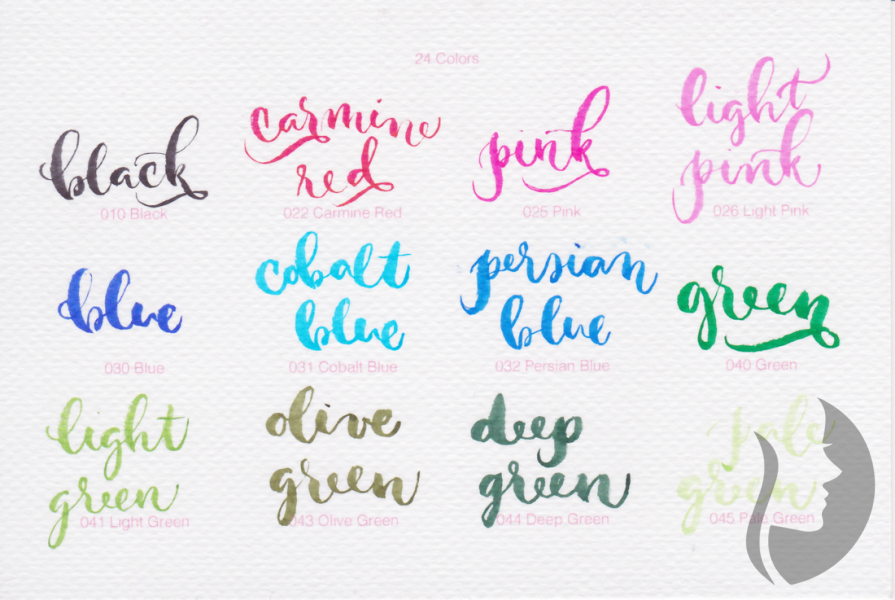 24 Colors
black
010 Black
carmine
red
022 Carmine Red
pink
025 Pink
light
pink
026 Light Pink
blue
030 Blue
cobalt
blue
031 Cobalt Blue
persian
blue
032 Persian Blue
green
040 Green
light
green
041 Light Green
olive
green
043 Olive Green
deep
green
044 Deep Green
pale
green
045 Pale Green